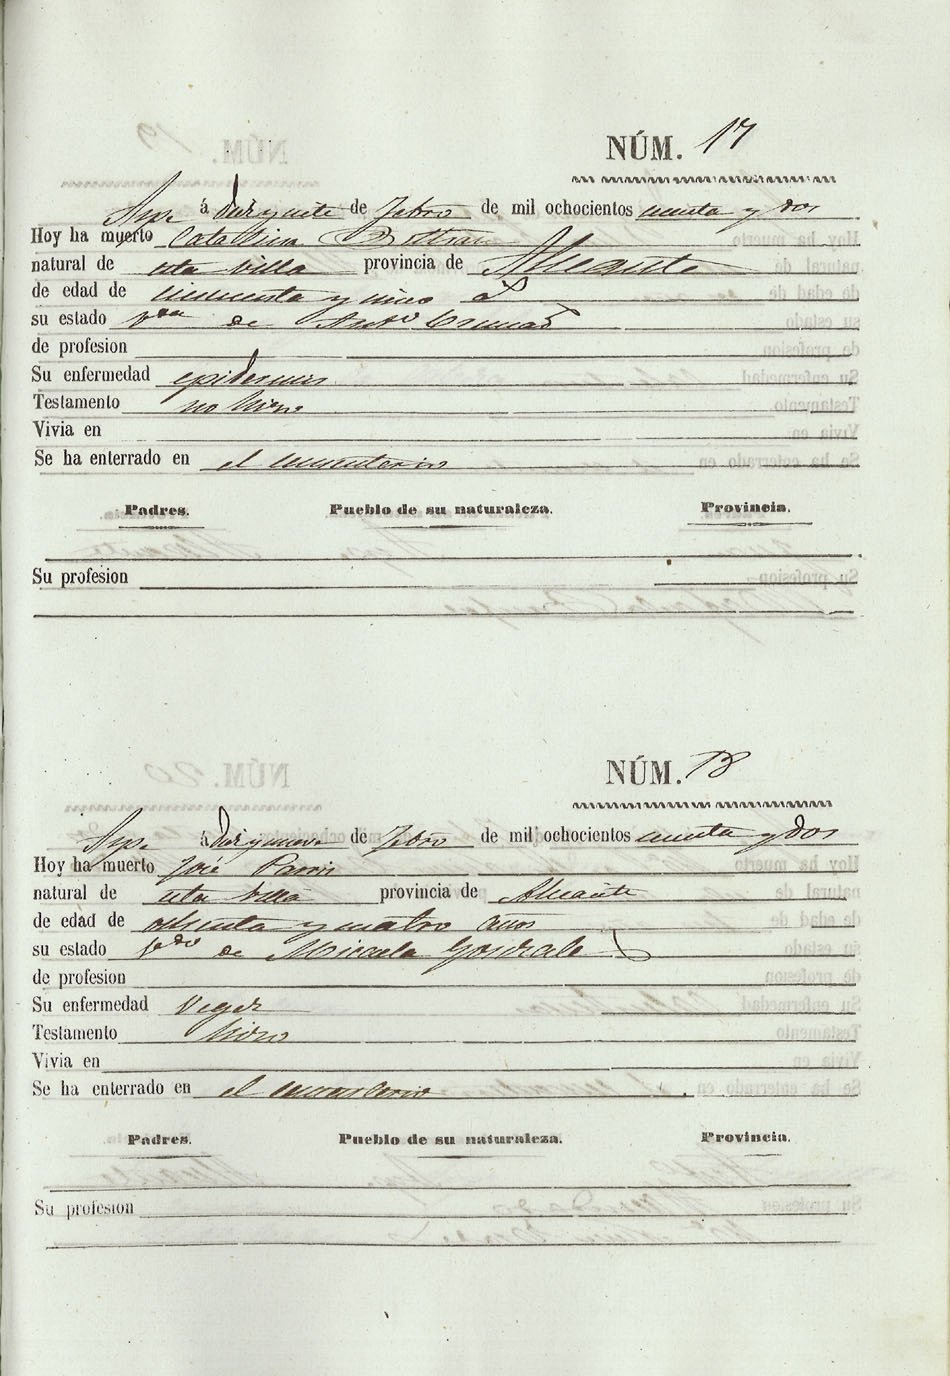 NÚM. 17
Aspe á diez y siete de Febro de mil ochocientos cincuenta y dos
Hoy ha muerto Catalina Beltran
natural de esta Villa provincia de Alicante
de edad de cincuenta y cinco
su estado Vda de Anto
de profesion
Su enfermedad
Testamento no hizo
Vivia en
Se ha enterrado en el cementerio
Padres. Pueblo de su naturaleza. Provincia.
Su profesion
NÚM. 18
Aspe á diez y nueve de Febro de mil ochocientos cincuenta y dos
Hoy ha muerto José
natural de esta Villa provincia de Alicante
de edad de ochenta y cuatro años
su estado Vdo de Micaela Gonzales
de profesion
Su enfermedad Vejez
Testamento hizo
Vivia en
Se ha enterrado en el cementerio
Padres. Pueblo de su naturaleza. Provincia.
Su profesion